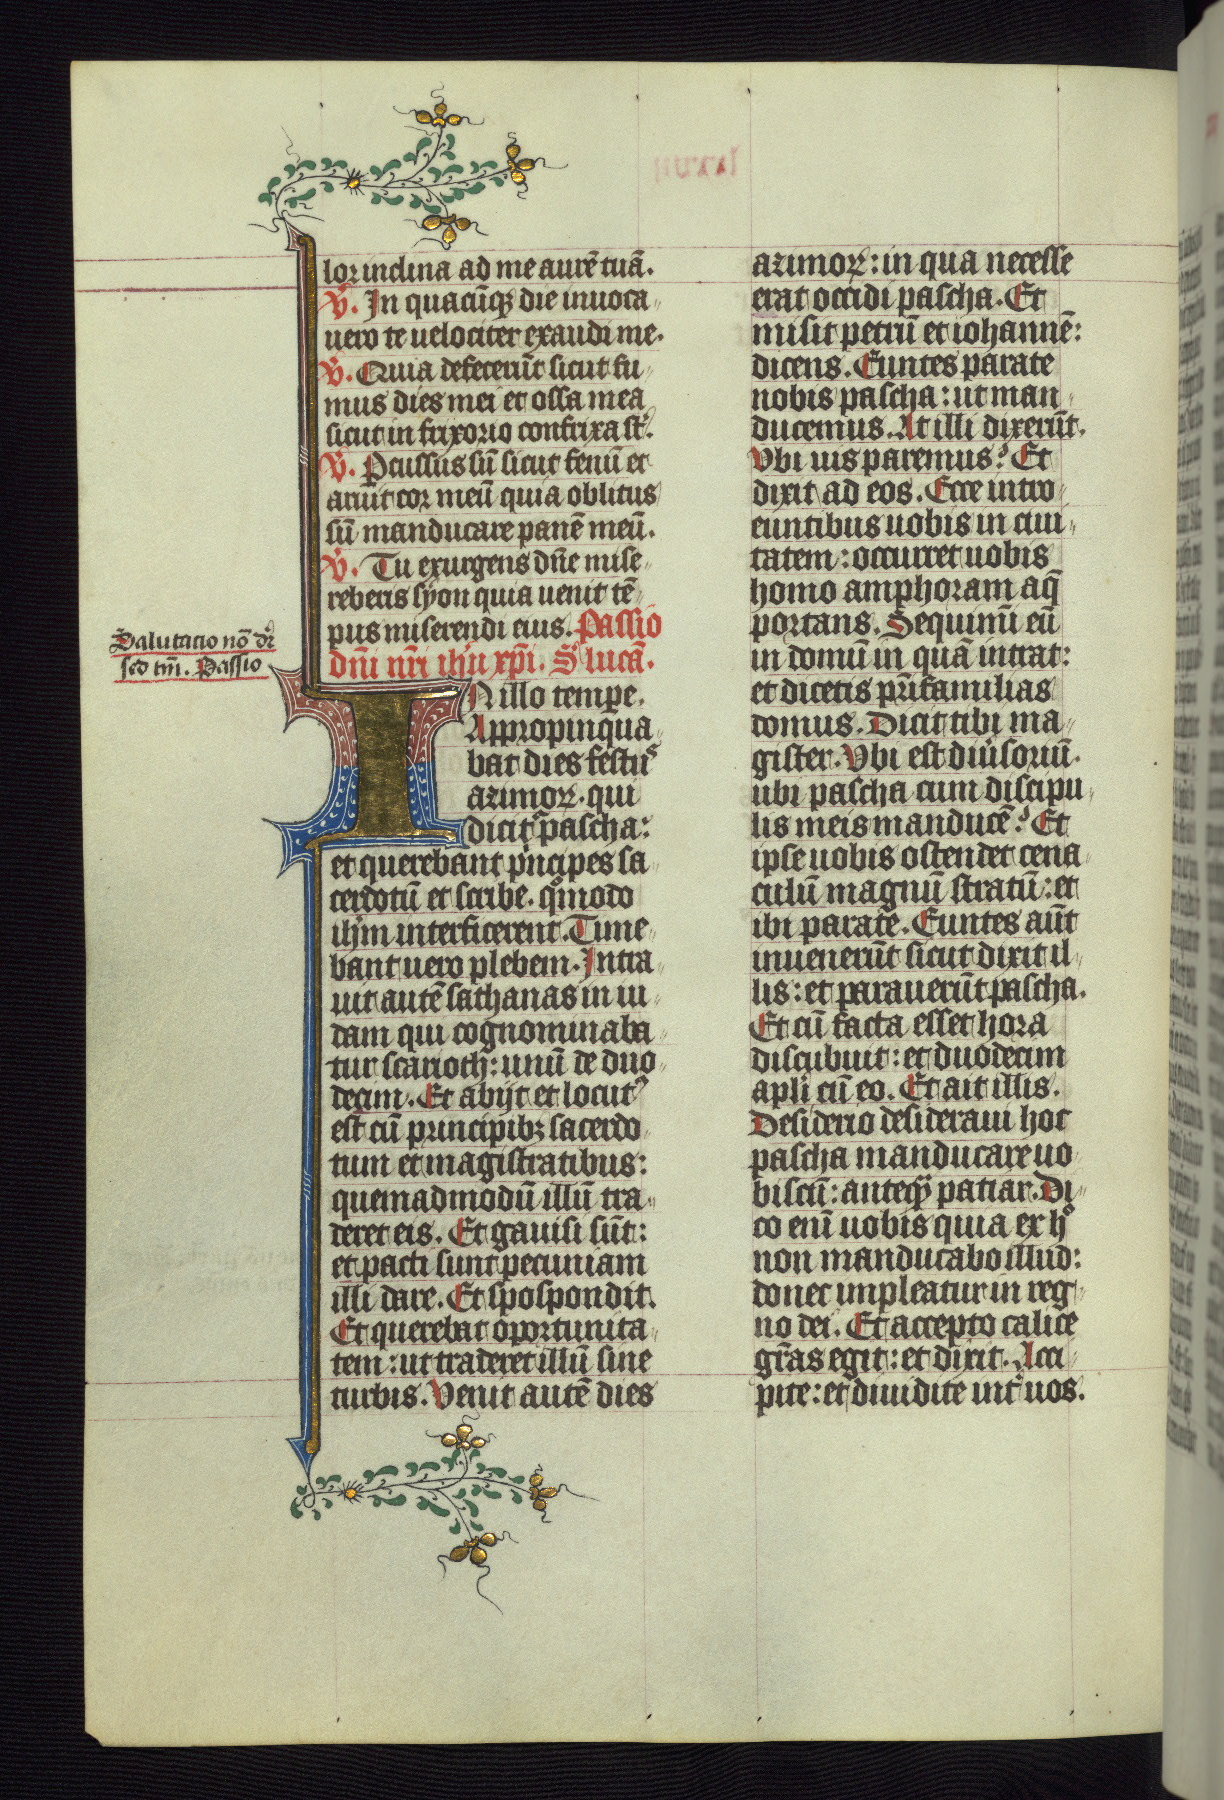 lor inclina ad me aurē tuā.
V̾. In quacūqꝫ die inuoca
uero te uelociter exaudi me.
V̾. Quia defecerūt sicut fu
mus dies mei et ossa mea
sicut in frixorio confrixa st̄.
V̾. Ꝑcussus sū sicut fenū et
aruit cor meū quia oblitus
sū manducare panē meū.
V̾. Tu exurgens dn̄e mise
reberis syon quia uenit tē
pus miserendi eius. Passio
dn̄i nr̄i ihū xp̄i. S̾ lucā.
Salutatio nō dr̄
sed tm̄. Passio
IN illo tempe.
Appropinqua
bat dies festuˢ
azimoꝝ. qui
dicit᷑ pascha:
et querebant pͥncipes sa
cerdotū et scribe. qͦmodo
ihm̄ interficerent. Time
bant uero plebem. Intra
uit autē sathanas in iu
dam qui cognominaba
tur scarioth: unū de duo
decim. Et abijt et locutꝰ
est cū principibꝫ sacerdo
tum et magistratibus:
quemadmodū illū tra
deret eis. Et gauisi sūt:
et pacti sunt pecuniam
illi dare. Et spospondit.
Et querebat oportunita
tem: ut traderet illū sine
turbis. Venit autē dies
azimoꝝ: in qua necesse
erat occidi pascha. Et
misit petrū et iohannē:
dicens. Euntes parate
nobis pascha: ut man
ducemus. At illi dixerūt.
Vbi uis paremus? Et
dixit ad eos. Ecce intro
euntibus uobis in ciui
tatem: occurret uobis
homo amphoram aq̄
portans. Sequimī eū
in domū in quā intrat:
et dicetis pr̄ifamilias
domus. Dicit tibi ma
gister. Vbi est diu̾soriū.
ubi pascha cum discipu
lis meis manducē? Et
ipse uobis ostendet cena
culū magnū stratū: et
ibi parate. Euntes aūt
inuenerūt sicut dixit il
lis: et parauerūt pascha.
Et cū facta esset hora
discubuit: et duodecim
apl̄i cū eo. Et ait illis.
Desiderio desideraui hoc
pascha manducare uo
biscū: anteqꝫ patiar. Di
co enī uobis quia ex hͦ
non manducabo illud:
donec impleatur in reg
no dei. Et accepto calice
gr̄as egit: et dixit. Acci
pite: et diuidite int̾ uos.